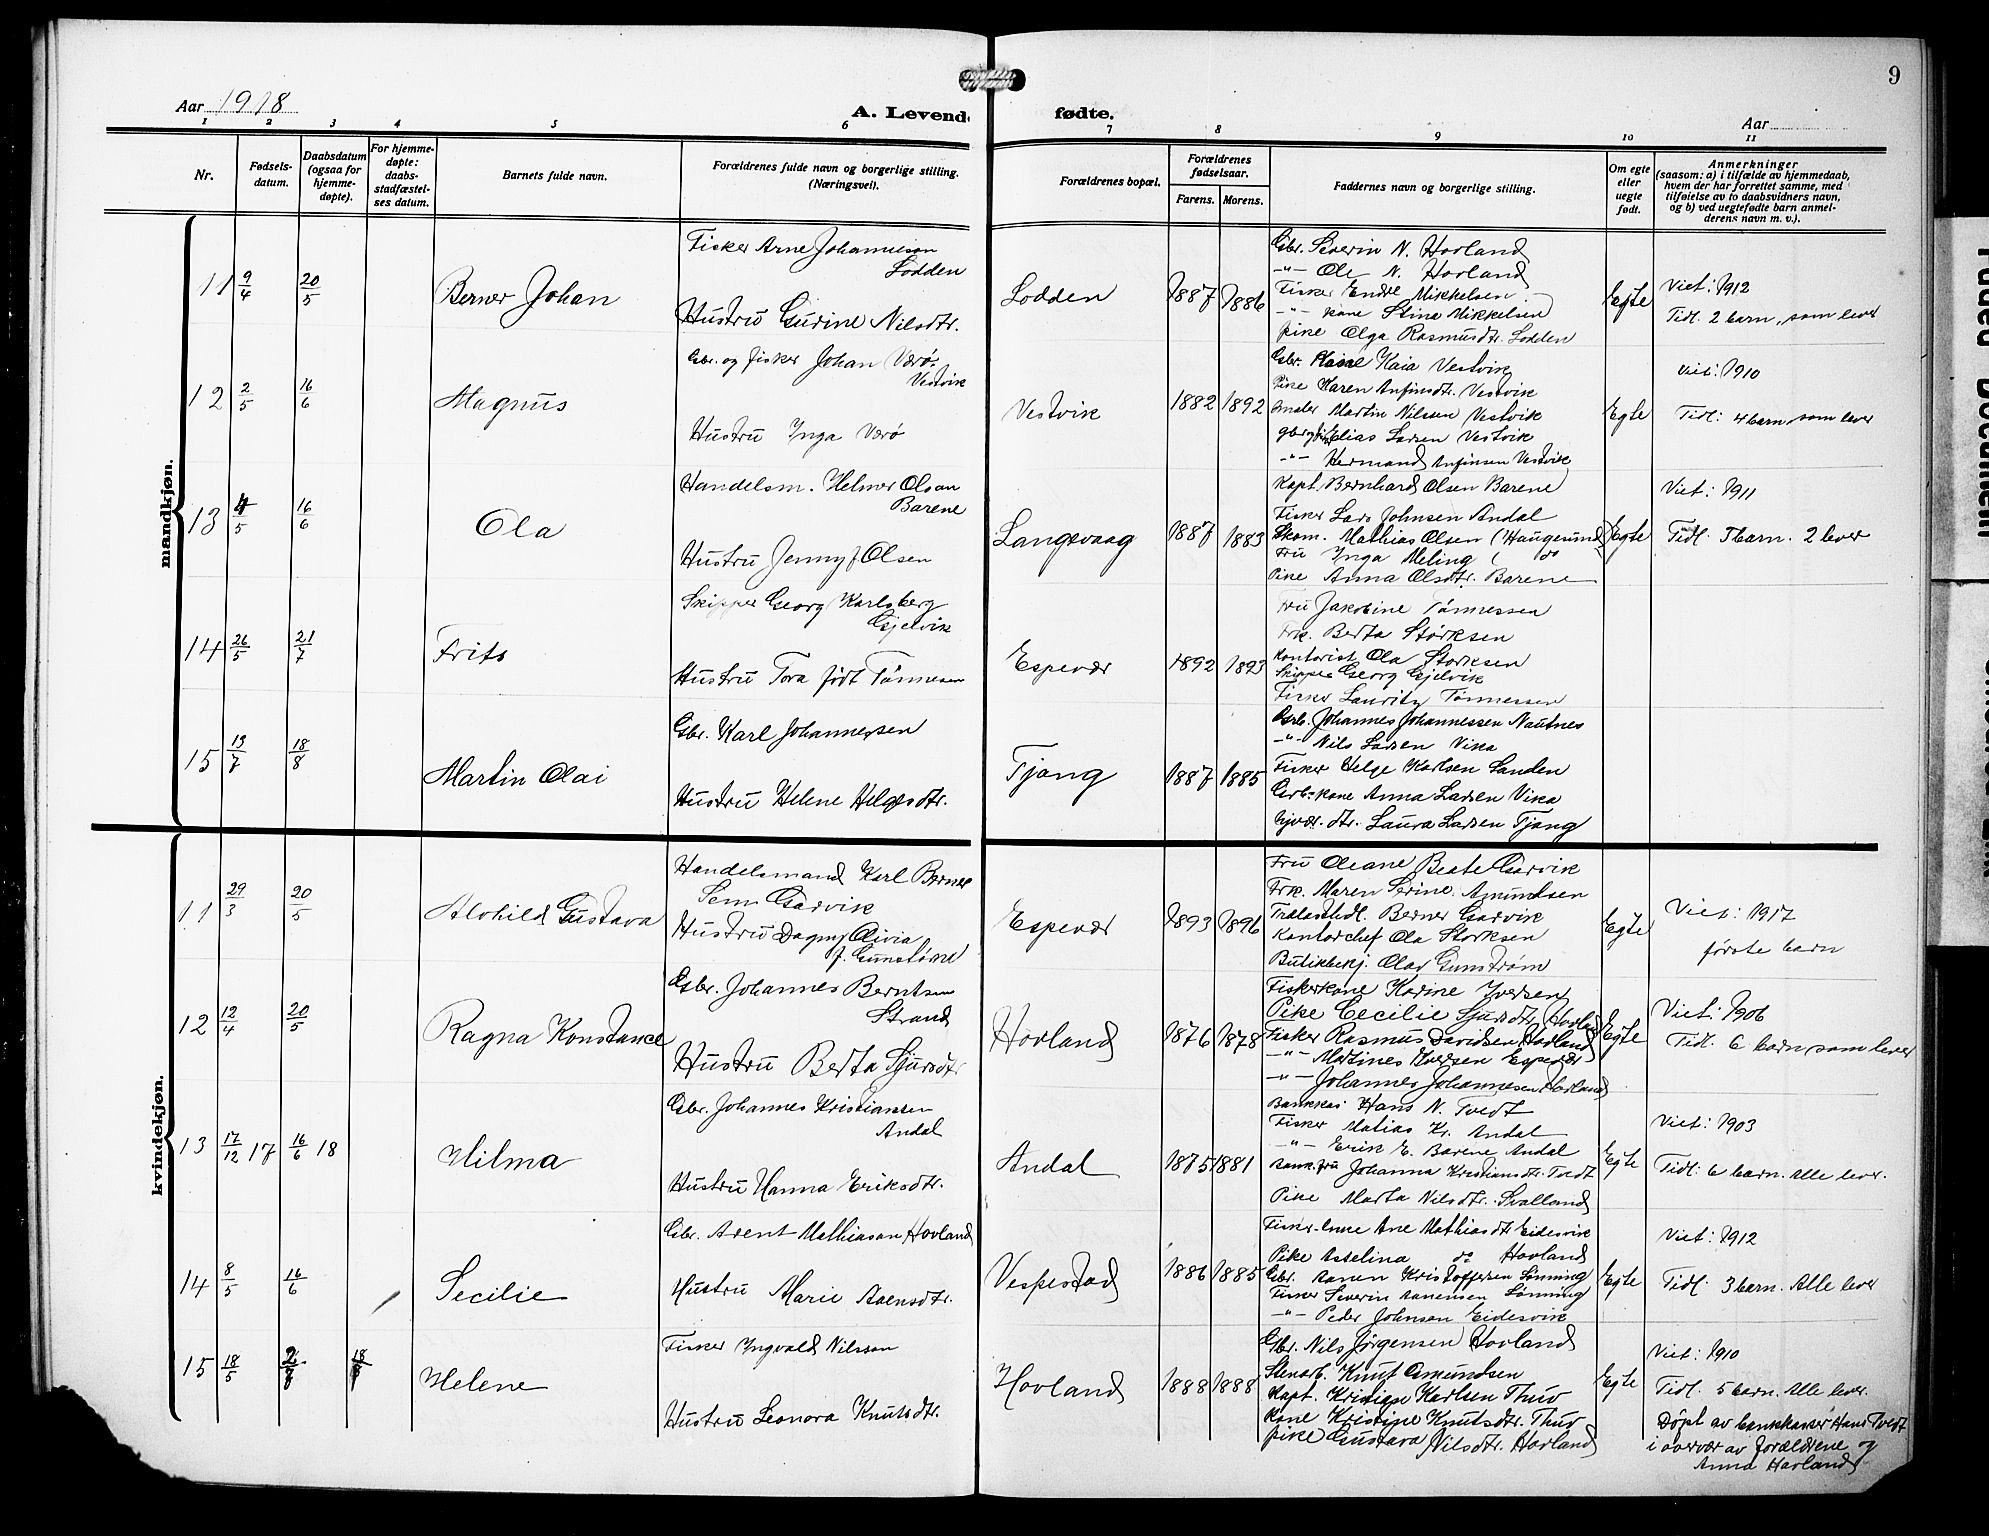 9
Aar 1918
A. Levende
fødte.
Aar
1 2 3 4 5 6 7 8 9 10 11
Nr.
Fødsels-
datum.
Daabsdatum
(ogsaa for
hjemme-
døpte).
For hjemme-
døpte:
daabs-
stadfæstel-
ses datum.
Barnets fulde navn.
Forældrenes fulde navn og borgerlige stilling.
(Næringsvei).
Forældrenes bopæl.
Forældrenes
fødselsaar.
Farens. Morens.
Faddernes navn og borgerlige stilling.
Om egte
eller
uegte
født.
Anmerkninger
(saasom: a) i tilfælde av hjemmedaab,
hvem der har forrettet samme, med
tilføielse av to daabsvidners navn,
og b) ved uegtefødte barn anmel-
derens navn m. v.).
mandkjøn.
11 9/4 20/5 Berner Johan
Fisker Arne Johannesson
Lodden
Hustru Gurine Nilsdtr.
Lodden 1887 1886
Gbr. Severin N. Hovland
-"- Ole N. Hovland
Fisker Endre Mikkelsen
-"- kone Stina Mikkelsen
pike Olga Rasmusdtr. Lodden
Egte
Viet: 1912
Tidl. 2 barn, som lever
12 2/5 16/6 Magnus
Gbr. og fisker Johan Værø
Vestvik
Hustru Inga Værø
Vestvik 1882 1892
Gbr. Kaia Vestvik
Pike Karen Anfinsdtr. Vestvik
Martin Nilssen Vestvik
Elias Larsen Vestvik
-"- Hermand Anfinsen Vestvik
Egte
Viet: 1910
Tidl: 4 barn, som lever
13 4/5 16/6 Ola
Handelsm. Helmer Olsen
Barene
Hustru Jenny f Olsen
Langevaag 1887 1883
Kapt. Bernhard Olsen Barene
Fisker Lars Johnsen Andal
Skom. Mathias Olsen (Haugesund)
Fru Inga Meling ( do
Pike Anna Olsdtr. Barene
Egte
Viet: 1911
Tidl. 3 barn. 2 lever
14 26/5 21/7 Frits
Skipper Georg Karlsberg
Gjelvik
Hustru Tora født Tønnesen
Espevær 1892 1893
Fru Jakobine Tønnessen
Frk. Berta Størksen
Kontorist Ola Størksen
Skipper Georg Gjelvik
Fisker Lauritz Tønnessen
15 13/7 18/8 Martin Olai
Gbr. Karl Johannessen
Hustru Helene Helgesdtr.
Tjong 1887 1885
Grb. Johannes Johannessen Nautnes
-"- Nils Larsen Vika
Fisker Helge Karlsen Sanden
Grb-kone Anna Larsen Vika
dtr. Laura Larsen Tjong
kvindekjøn.
11 29/3 20/5 Alvhild Gustava
Handelsmand Karl Berner
Sem Garvik
Hustru Dagny Olivia
f. Gunstrøm
Espevær 1893 1896
Fru Oleane Beate Garvik
Frk. Maren Serine Amundsen
Berner Garvik
Kontorchef Ola Størksen
Butikbetj. Olav Gunstrøm
Egte
Viet: 1917
første barn
12 12/4 20/5 Ragna Konstance
Gbr. Johannes Berntsen
Strand
Hustru Berta Sjursdtr
Hovland 1876 1878
Fiskerkone Karine Iversen
Pike Cecilie Sjursdtr. Hovland
Fisker Rasmus Davidsen Hovland
-"- Martines Iversen Espevær
-"- Johannes Johannesen Hovland
Egte
Viet: 1906
Tidl. 6 barn, som lever
13 17/12 17 16/6 18 Hilma
Gbr. Johannes Kristiansen
Andal
Hustru Hanna Eriksdtr.
Andal 1875 1881
Bankkas Hans N. Tvedt
Fisker Matias Kr. Andal
-"- Erik E. Barene Andal
Bank.fru Johanna Kristiansdtr. Tvedt
Pike Marta Nilsdtr. Svalland
Egte
Viet: 1903
Tidl: 6 barn. Alle lever.
14 8/5 16/6 Secilie
Gbr. Arent Mathiasen Hovland
Hustru Marie Aaensdtr.
Vespestad 1886 1885
Ane Mathiasdtr. Eidesvik
Pike Astelina do Hovland
Gbr. Aanen Kristoffersen Lønning
Fisker Severin Aanensen Lønning
-"- Peder Johnsen Eidesvik
Egte
Viet: 1912
Tidl. 3 barn. Alle lever
15 18/5 18/8 Helene
Fisker Ingvald Nilsson
Hustru Leonora Knutsdtr.
Hovland 1888 1888
Gbr. Nils Jørgensen Hovland
Stenarb. Knut Osmundsen
Kapt. Kristian Karlsen Thuv
Kone Kristine Knutsdtr. Thuv
pike Gustava Nilsdtr. Hovland
Egte
Viet: 1910
Tidl. 5 barn. Alle lever.
Døpt av bankkasser Hans Tvedt
i overvær av forældrene og
Anna Hovland